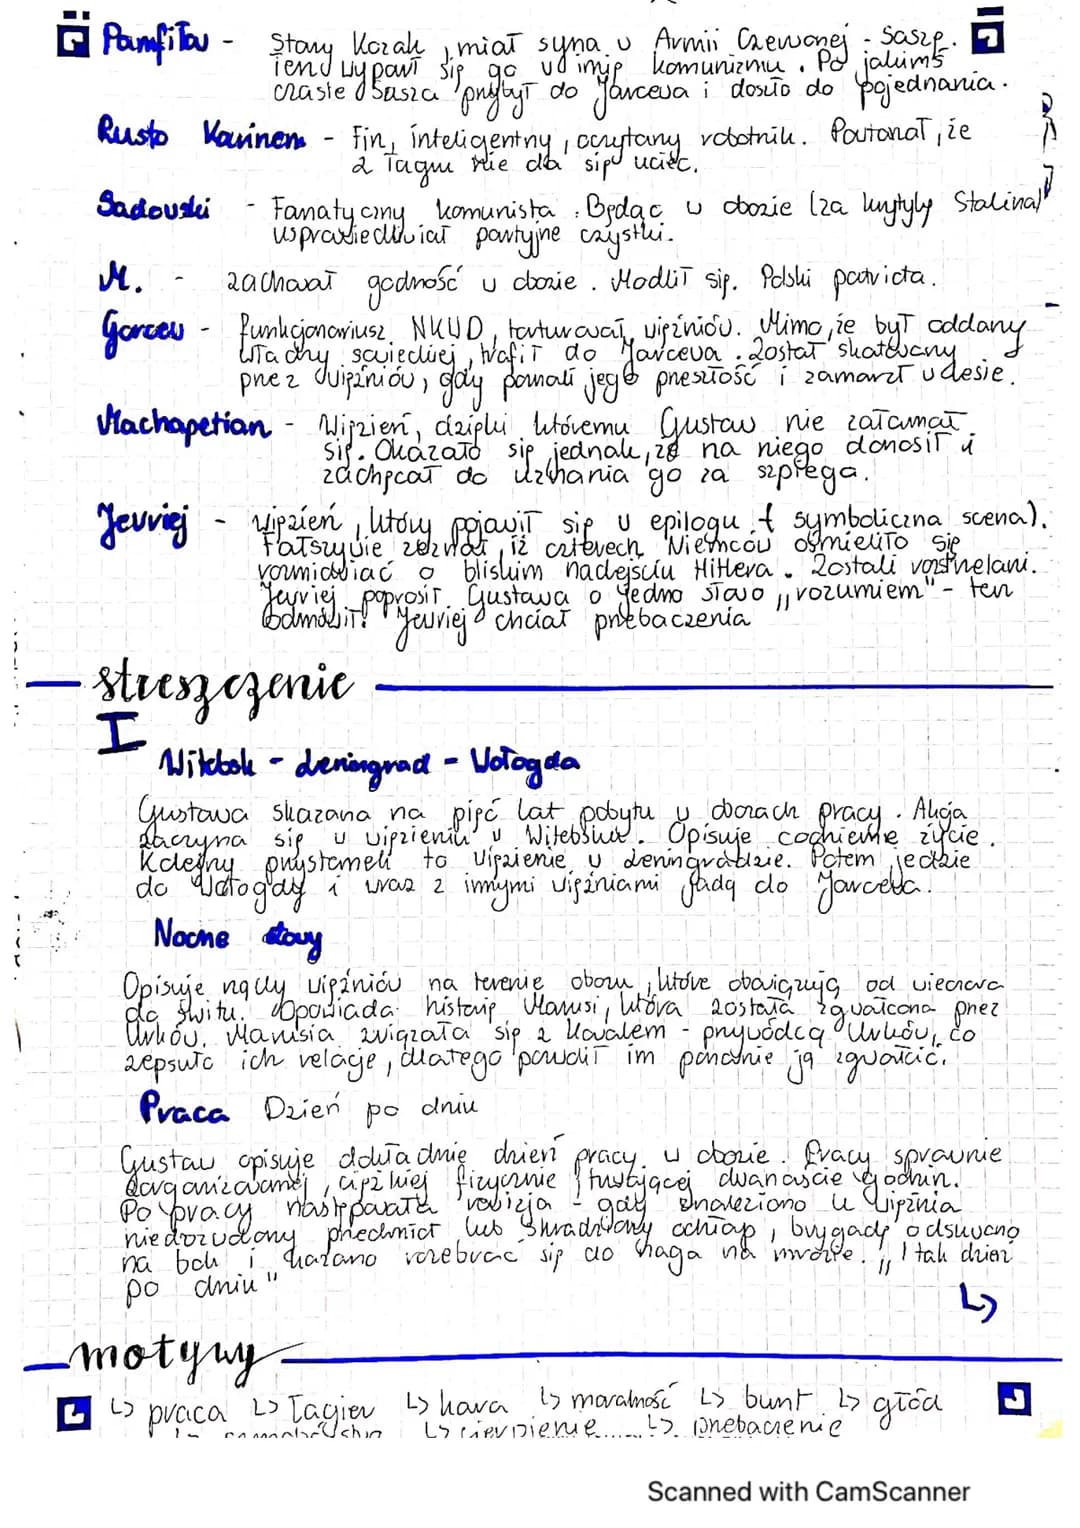 Pamfiłow - Stary Kozak, miał syna w Armii Czerwonej - Saszę.
Ten wyparł się go w imię komunizmu. Po jakimś
czasie Sasza przybył do Jarcewa i doszło do pojednania.
Rusto Karinen - Fin, inteligentny, oczytany robotnik. Pokonał, że
z łagru nie da się uciec.
Sadowski - Fanatyczny komunista. Będąc w obozie (za krytykę Stalina)
usprawiedliwiał partyjne czystki.
M. - zachował godność w obozie. Modlił się. Polski patriota.
Gorcew - funkcjonariusz NKWD, torturował więźniów. Mimo, że był oddany
władzy sowieckiej, trafił do Jarcewa. Został skatowany
przez więźniów, gdy poznali jego przeszłość i zamarzł w lesie.
Machapetian - Więzień, dzięki któremu Gustaw nie załamał
się. Okazało się jednak, że na niego donosił i
zachęcał do uznania go za szpiega.
Jewriej - więzień, który pojawił się w epilogu († symboliczna scena).
Fałszywie zeznał, iż czterech Niemców ośmieliło się
rozmawiać o bliskim nadejściu Hitlera. Zostali rozstrzelani.
Jewriej poprosił Gustawa o jedno słowo "rozumiem" - ten
odmówił! Jewriej chciał przebaczenia
streszczenie
I
Witebsk - Leningrad - Wołogda
Gustawa skazana na pięć lat pobytu w obozach pracy. Akcja
zaczyna się w więzieniu w Witebsku. Opisuje codzienne życie.
Kolejny przystanek to więzienie w Leningradzie. Potem jedzie
do Wołogdy i wraz z innymi więźniami jadą do Jarcewa.
Nocne łowy
Opisuje rządy więźniów na terenie obozu, które obowiązują od wieczora
do świtu. Opowiada historię Marusi, która została zgwałcona przez
Urków. Marusia związała się z Kowalem - przywódcą Urków, co
zepsuło ich relacje, dlatego pozwolił im ponownie ją zgwałcić.
Praca Dzień po dniu
Gustaw opisuje dokładnie dzień pracy w obozie. Pracy sprawnie
zorganizowanej, ciężkiej fizycznie i trwającej dwanaście godzin.
Po pracy następowała rewizja - gdy znaleziono u więźnia
niedozwolony przedmiot lub skradziony ochłap, brygadę odsuwano
na bok i kazano rozebrać się do naga na mrozie. "I tak dzień
po dniu"
↳
motywy
↳ praca ↳ łagier ↳ kara ↳ moralność ↳ bunt ↳ głód
↳ samobójstwo ↳ cierpienie ↳ przebaczenie
Scanned with CamScanner